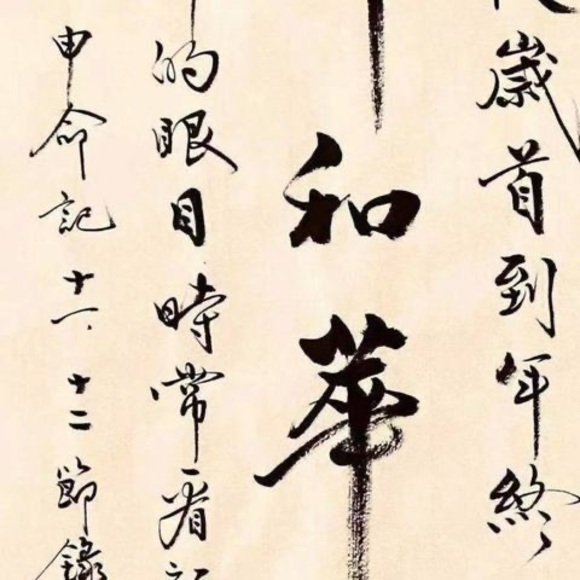 歲首到年終
和華
的眼目時常看
申命記十一、十二節錄